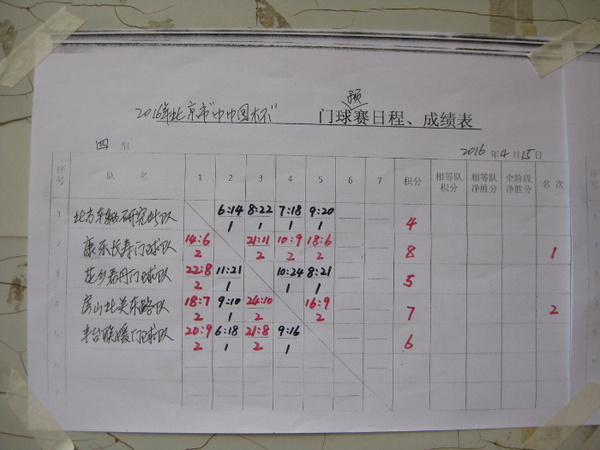 2016年北京市"中中国杯" 预
门球赛日程、成绩表
四 组 2016年4月15日
序号 队 名 1 2 3 4 5 6 7 积分 相等队积分 相等队净胜分 全阶段净胜分 名次
1 北方车辆研究所队 6:14 8:22 7:18 9:20 4
1 1 1 1
2 康乐长寿门球队 14:6 21:11 10:9 18:6 8 1
2 2 2 2
3 花乡 门球队 22:8 11:21 10:24 8:21 5
2 1 1 1
4 房山北关东路队 18:7 9:10 24:10 16:9 7 2
2 1 2 2
5 丰台联 门球队 20:9 6:18 21:8 9:16 6
2 1 2 1